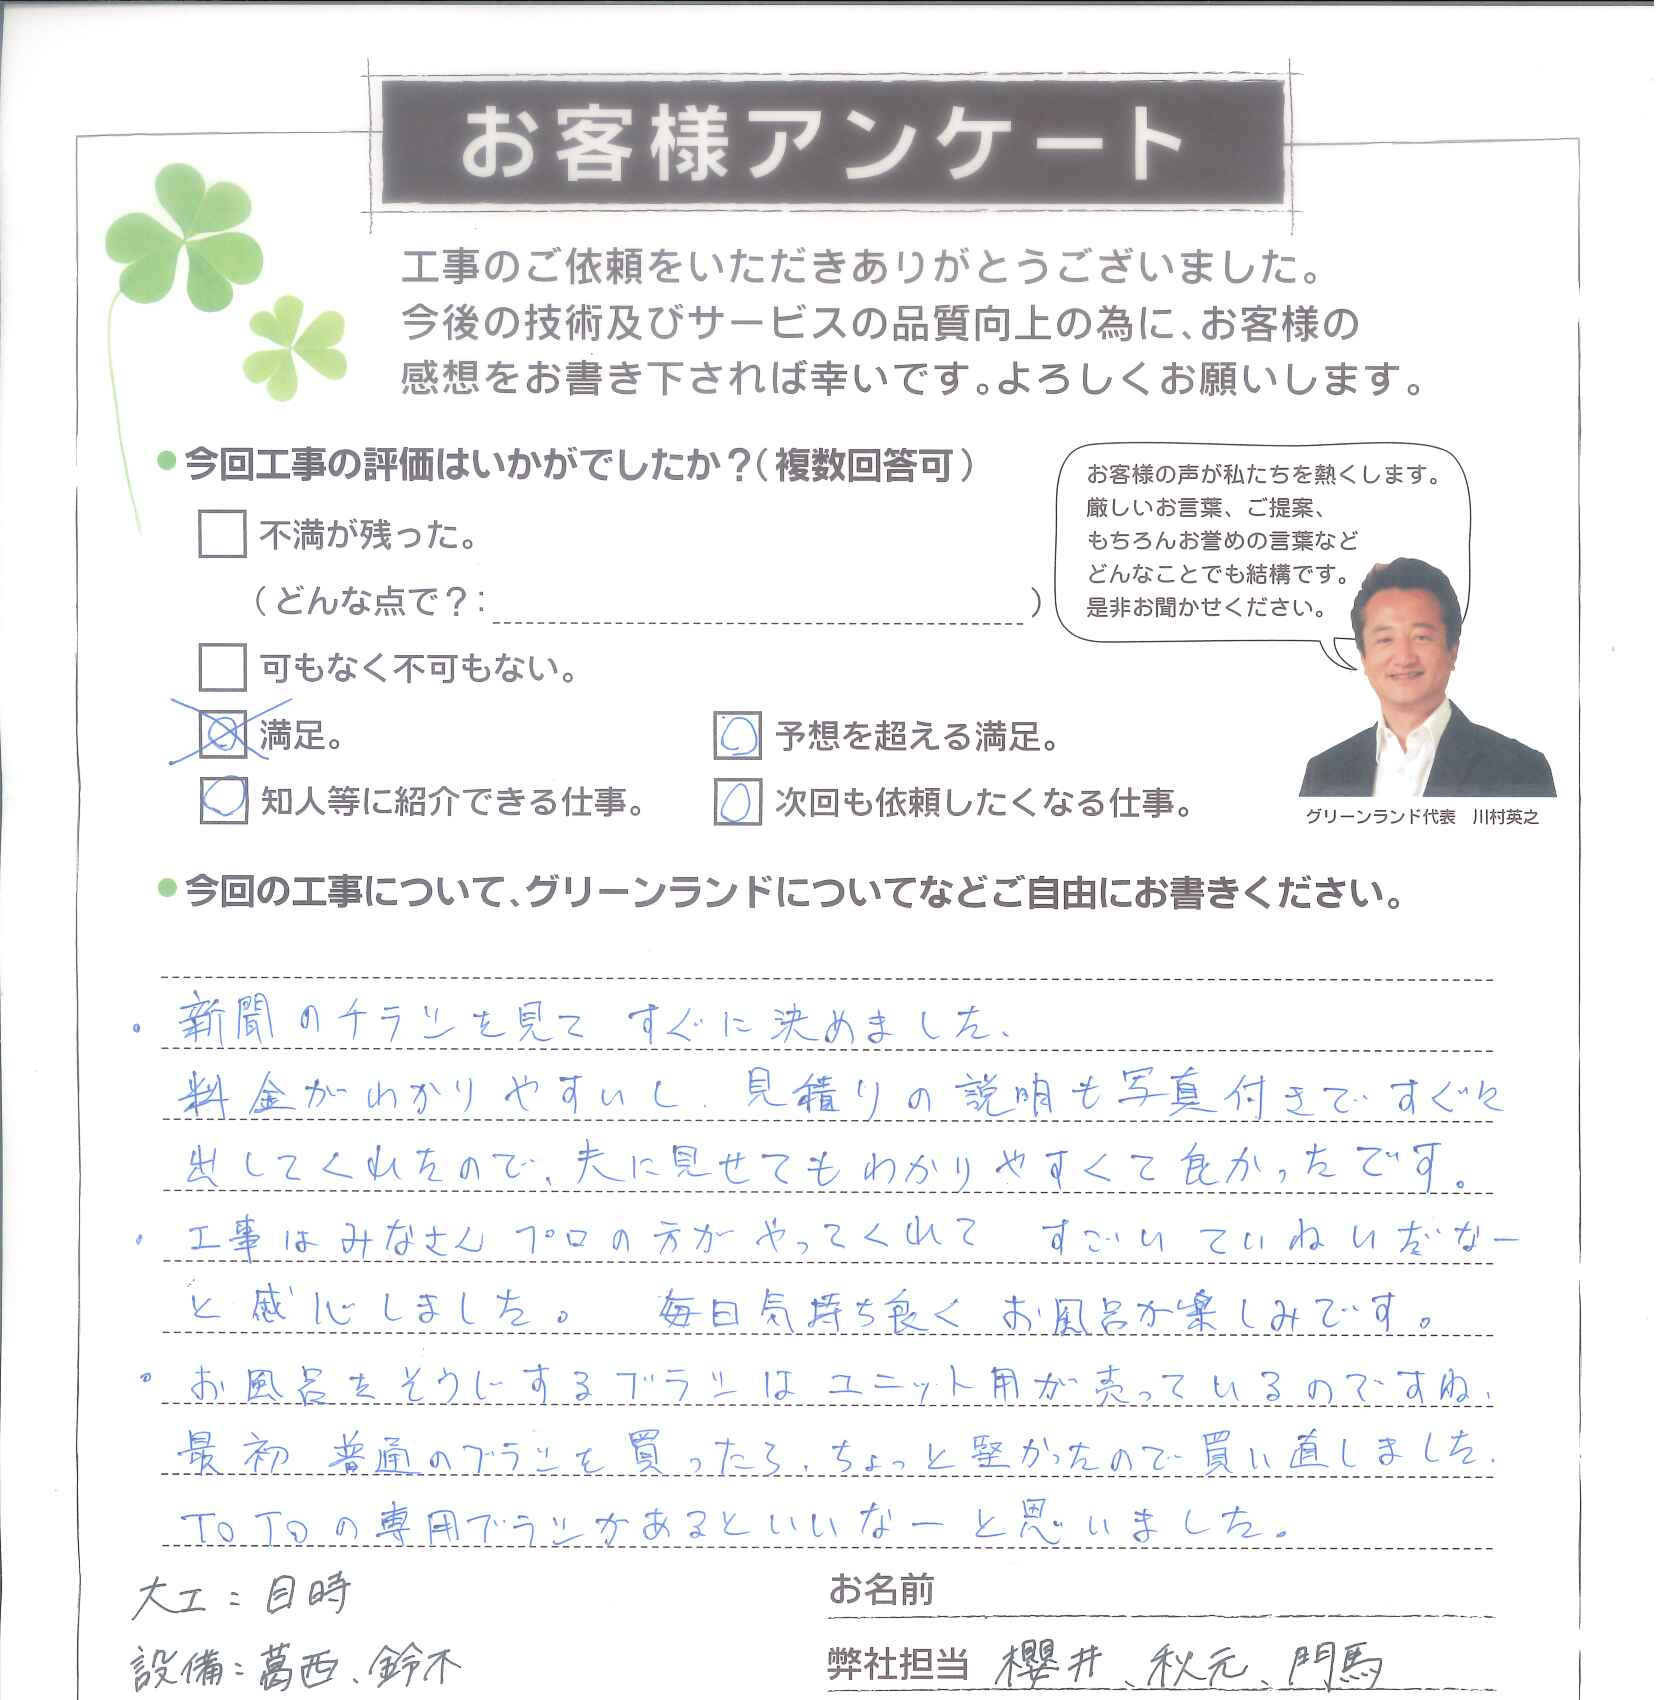 お客様アンケート
工事のご依頼をいただきありがとうございました。
今後の技術及びサービスの品質向上の為に、お客様の
感想をお書き下されば幸いです。よろしくお願いします。
●今回工事の評価はいかがでしたか？(複数回答可)
不満が残った。
(どんな点で？: )
可もなく不可もない。
満足。
予想を超える満足。
知人等に紹介できる仕事。
次回も依頼したくなる仕事。
お客様の声が私たちを熱くします。
厳しいお言葉、ご提案、
もちろんお誉めの言葉など
どんなことでも結構です。
是非お聞かせください。
グリーンランド代表　川村英之
●今回の工事について、グリーンランドについてなどご自由にお書きください。
・新聞のチラシを見て すぐに決めました、
料金がわかりやすいし、見積りの説明も写真付きですぐに
出してくれたので、夫に見せてもわかりやすくて良かったです。
・工事はみなさん プロの方がやってくれて すごいていねいだなー
と感心しました。 毎日気持ち良く お風呂が楽しみです。
・お風呂をそうじするブラシは ユニット用が売っているのですね、
最初 普通のブラシを買ったら、ちょっと堅かったので買い直しました、
TOTOの専用ブラシがあるといいなーと思いました。
大工：目時
設備：葛西、鈴木
お名前
弊社担当 櫻井、秋元、門馬